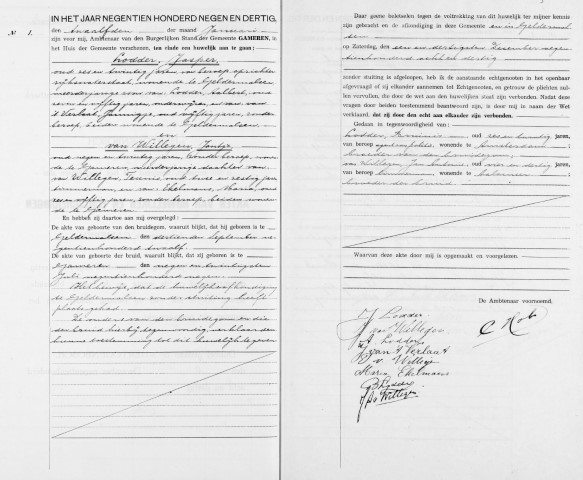 Nº 1.
IN HET JAAR NEGENTIEN HONDERD NEGEN EN DERTIG,
den twaalfden der maand Januari
zijn voor mij, Ambtenaar van den Burgerlijken Stand der Gemeente GAMEREN, in
het Huis der Gemeente verschenen, ten einde een huwelijk aan te gaan:
Lodder, Jasper,
oud zes en twintig jaren, van beroep
wonende te Geldermalsen,
meerderjarige zoon van Lodder, Aalbert, oud
zeven en vijftig jaren, en van van
't Verlaat, Jannigje, oud vijftig jaren, zonder
beroep, beiden wonende te Geldermalsen
en
van Willegen, Jantje,
oud negen en twintig jaren, zonder beroep, wonen-
de te Gameren, meerderjarige dochter van
van Willegen, Teunis, oud twee en zestig jaren,
timmerman, en van Ekelmans, Maria, oud
zes en vijftig jaren, zonder beroep, beiden wonen-
de te Gameren.
En hebben zij daartoe aan mij overgelegd:
De akte van geboorte van den bruidegom, waaruit blijkt, dat hij geboren is te
Geldermalsen den dertienden September ne-
gentienhonderd twaalf.
De akte van geboorte der bruid, waaruit blijkt, dat zij geboren is te
Gameren den negen en twintigsten
Juli negentienhonderd negen.
Het bewijs, dat de huwelijksafkondiging
te Geldermalsen zonder stuiting heeft
plaats gehad.
De ouders van den bruidegom en die
der bruid hierbij tegenwoordig, verklaarden
hunne toestemming tot dit huwelijk te geven
Daar geene beletselen tegen de voltrekking van dit huwelijk ter mijner kennis
zijn gebracht en de afkondiging in deze Gemeente en in Geldermal-
sen
op Zaterdag, den een en dertigsten December negen-
tienhonderd acht en dertig
zonder stuiting is afgeloopen, heb ik de aanstaande echtgenooten in het openbaar
afgevraagd of zij elkander aannemen tot Echtgenooten, en getrouw de plichten zullen
vervullen, die door de wet aan den huwelijken staat zijn verbonden. Nadat deze
vragen door beiden toestemmend beantwoord zijn, is door mij in naam der Wet
verklaard, dat zij door den echt aan elkander zijn verbonden.
Gedaan in tegenwoordigheid van:
Lodder, oud zes en twintig jaren,
van beroep wonende te Amsterdam
broeder van den bruidegom, en
van Willegen, Jan Antonie, oud vier en dertig jaren,
van beroep wonende te Gameren
broeder der bruid.
Waarvan deze akte door mij is opgemaakt en voorgelezen.
De Ambtenaar voornoemd,
J Lodder
J van Willegen
A Lodder
J van 't Verlaat
v. Willegen
Maria Ekelmans
Lodder
v Willegen
C Kob